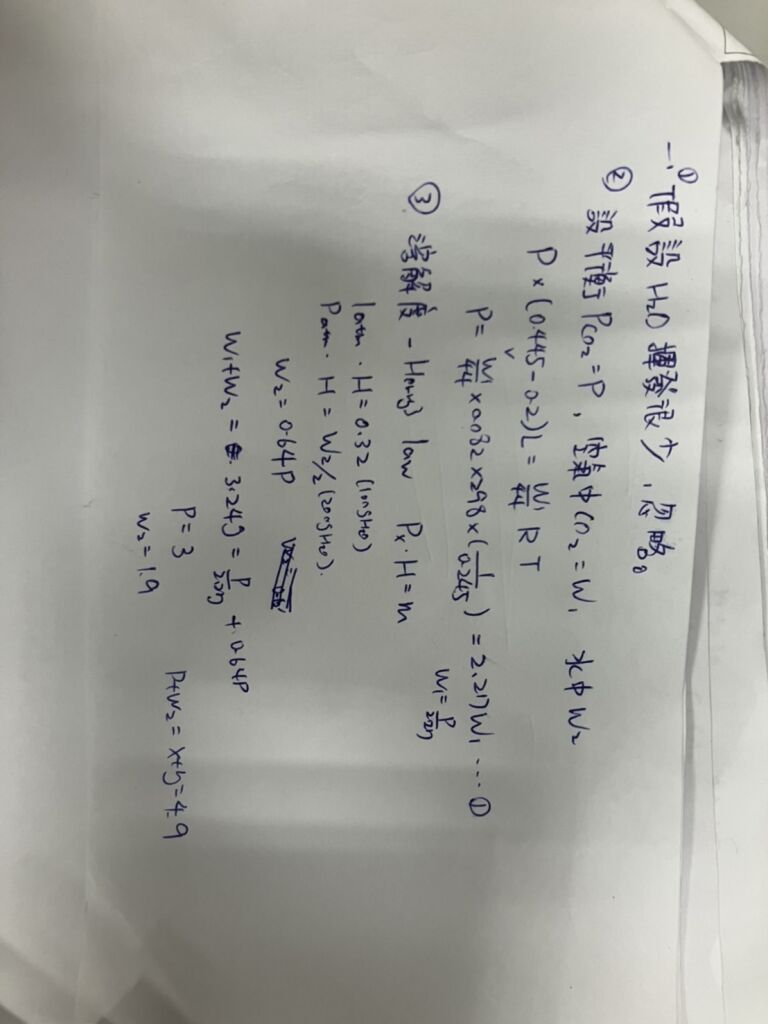 一、① 假設 H2O 揮發很少,忽略。
② 設平衡 Pco2 = P, 空氣中 CO2 = W1 水中 W2
P × (0.445 - 0.2)L = W1/44 RT
P = W1/44 × 0.082 × 298 × (1/0.245) = 2.27W1 ... ①
W1 = P/2.27
③ 溶解度 - Henry's law Px · H = m
1atm · H = 0.32 (100gH2O)
Patm · H = W2/2 (200gH2O).
W2 = 0.64P
W1+W2 = 3.24g = P/2.27 + 0.64P
P = 3
W2 = 1.9
P+W2 = x+y = 4.9